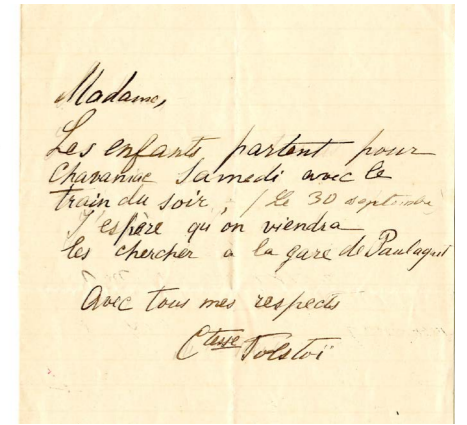 Madame,
Les enfants partent pour
Chavaniac Samedi avec le
train du soir, (le 30 septembre)
J'espère qu'on viendra
les chercher a la gare de Paulaguet
Avec tous mes respects
Ctesse Tolstoï